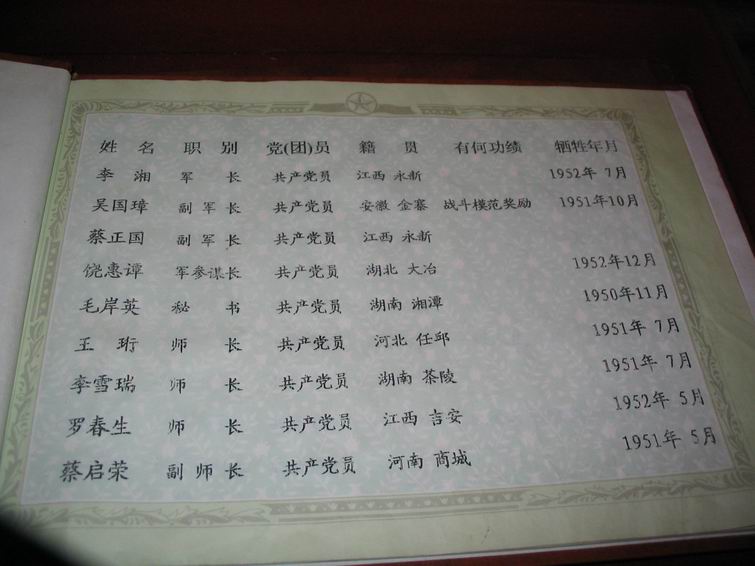 姓 名 职 别 党(团)员 籍 贯 有何功绩 牺牲年月
李 湘 军 长 共产党员 江西 永新 1952年 7月
吴国璋 副 军 长 共产党员 安徽 金寨 战斗模范奖励 1951年10月
蔡正国 副 军 长 共产党员 江西 永新
饶惠谭 军参谋长 共产党员 湖北 大冶 1952年12月
毛岸英 秘 书 共产党员 湖南 湘潭 1950年11月
王 珩 师 长 共产党员 河北 任邱 1951年 7月
李雪瑞 师 长 共产党员 湖南 茶陵 1951年 7月
罗春生 师 长 共产党员 江西 吉安 1952年 5月
蔡启荣 副 师 长 共产党员 河南 商城 1951年 5月